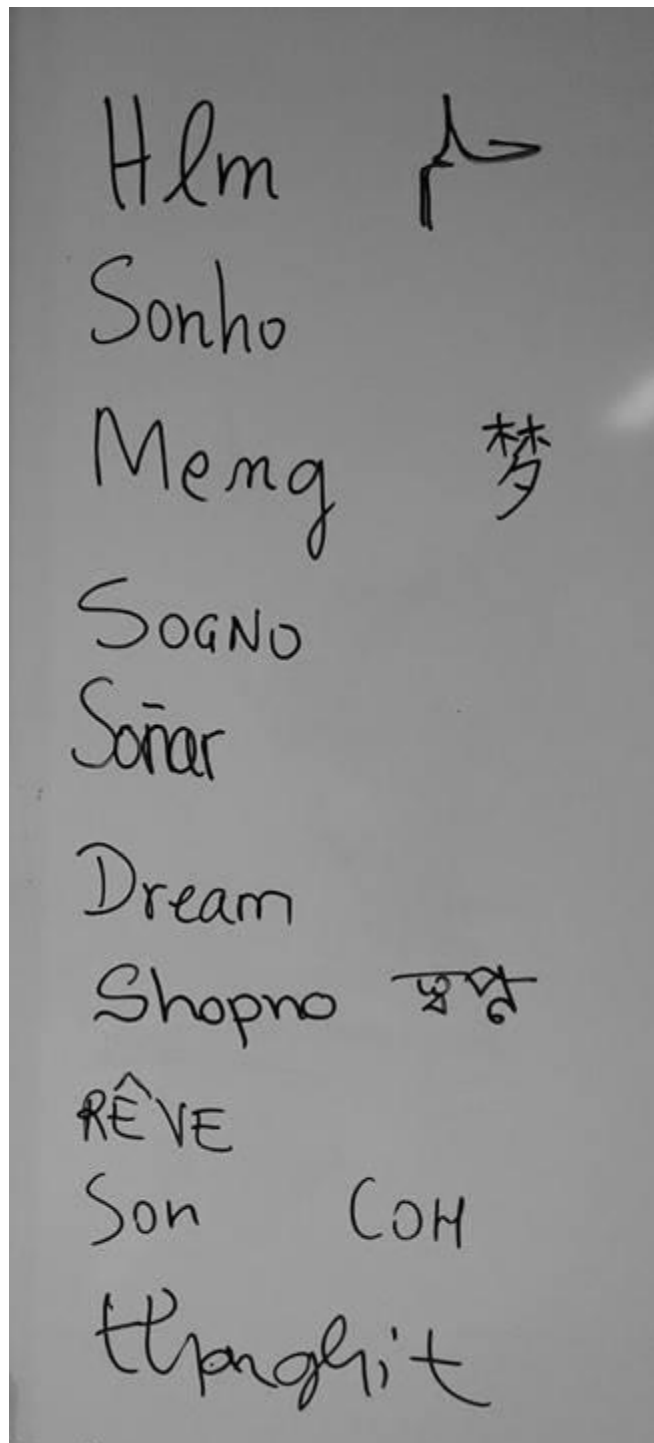 Hlm حلم
Sonho
Meng 梦
SOGNO
Soñar
Dream
Shopno স্বপ্ন
RÊVE
Son Сон